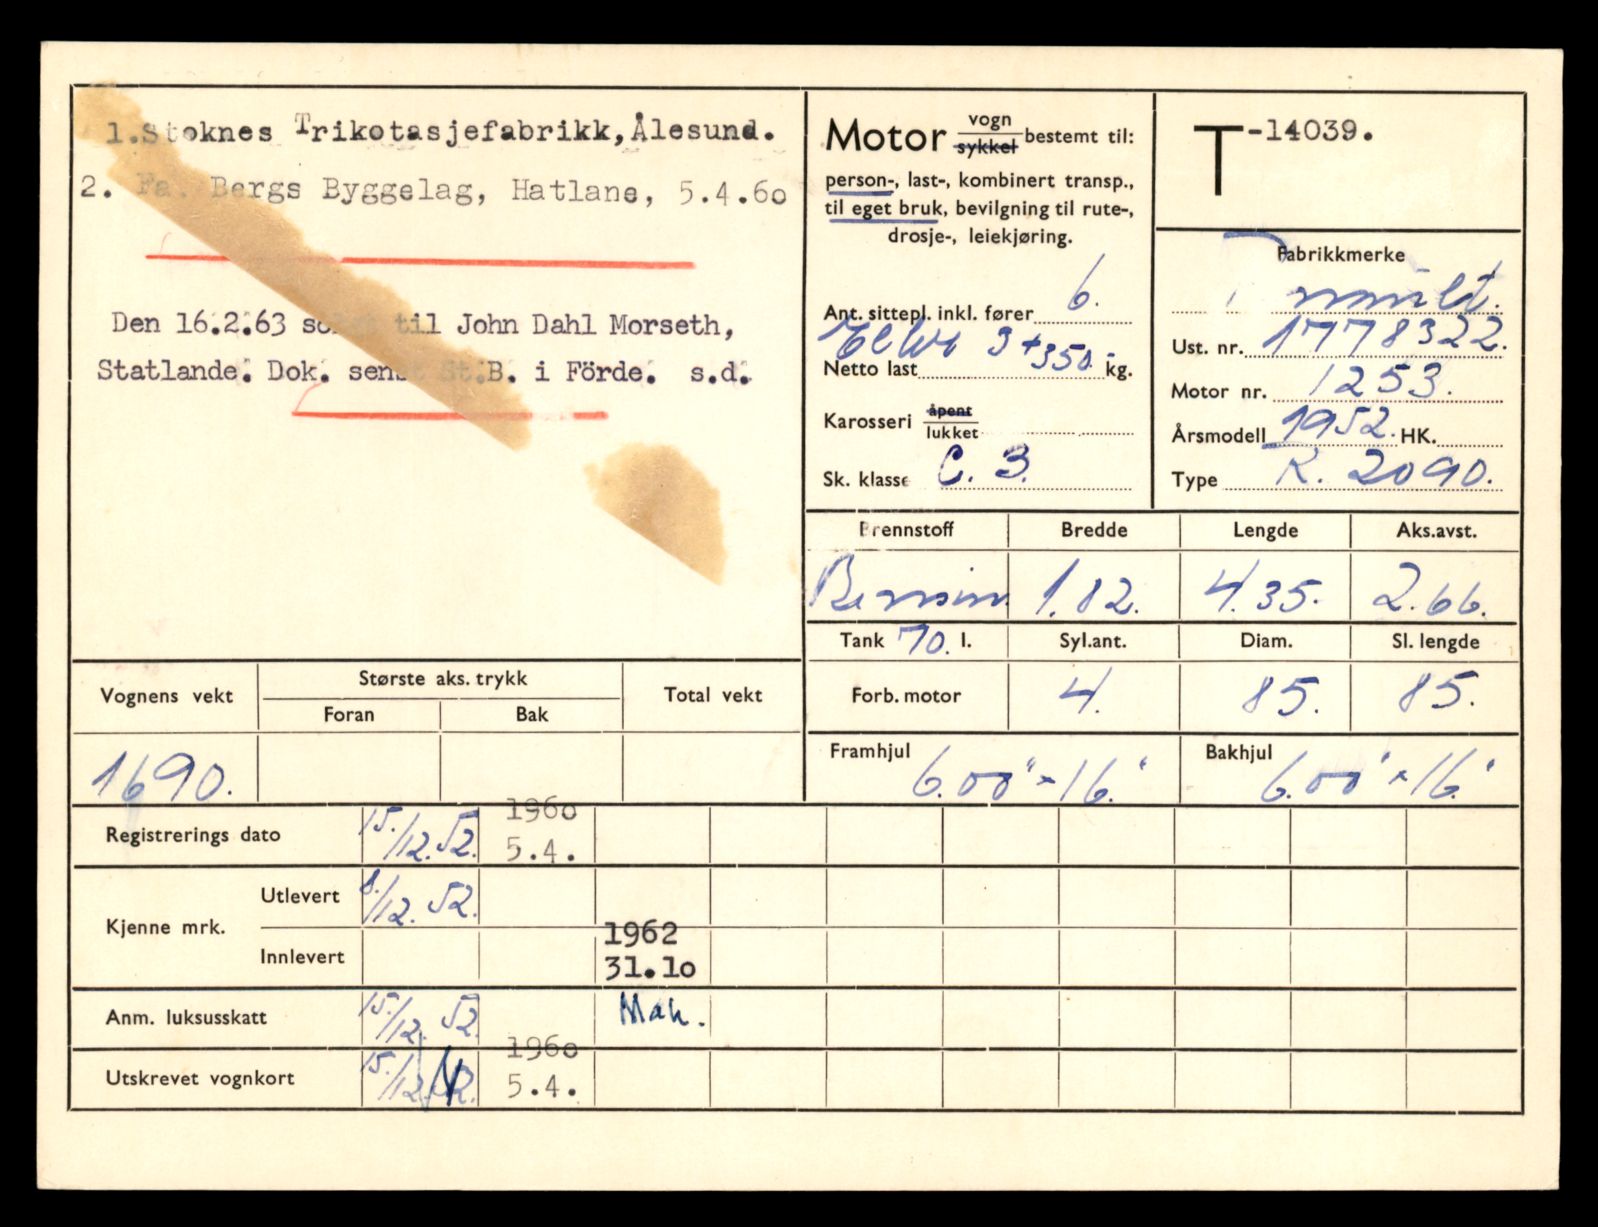 1.Stoknes Trikotasjefabrikk,Ålesund.
2. Fa. Bergs Byggelag, Hatlane, 5.4.60
Den 16.2.63 solgt til John Dahl Morseth,
Statlande. Dok. sendt St.B. i Förde. s.d.
Motor vogn/sykkel bestemt til:
person-, last-, kombinert transp.,
til eget bruk, bevilgning til rute-,
drosje-, leiekjøring.
Ant. sittepl. inkl. fører 6.
Eller 3 + 350.
Netto last kg.
Karosseri åpent/lukket
Sk. klasse C. 3.
T-14039.
Fabrikkmerke
Renault.
Ust. nr. 1778322.
Motor nr. 1253.
Årsmodell 1952. HK.
Type R. 2090.
Brennstoff Bredde Lengde Aks.avst.
Bensin 1.82. 4.35. 2.66.
Tank 70. l. Syl.ant. Diam. Sl. lengde
Forb. motor 4. 85. 85.
Framhjul 6.00" x 16." Bakhjul 6.00" x 16."
Vognens vekt Største aks. trykk Total vekt
Foran Bak
1690.
Registrerings dato 15./12. 52. 1960 5.4.
Kjenne mrk. Utlevert 8./12. 52.
Innlevert 1962 31.10
Anm. luksusskatt 15./12. 52. Mak.
Utskrevet vognkort 15./12. 52. 1960 5.4.